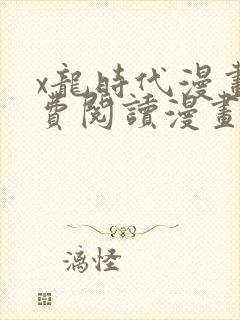 x龍時代漫畫
費閱讀漫畫
漓怪